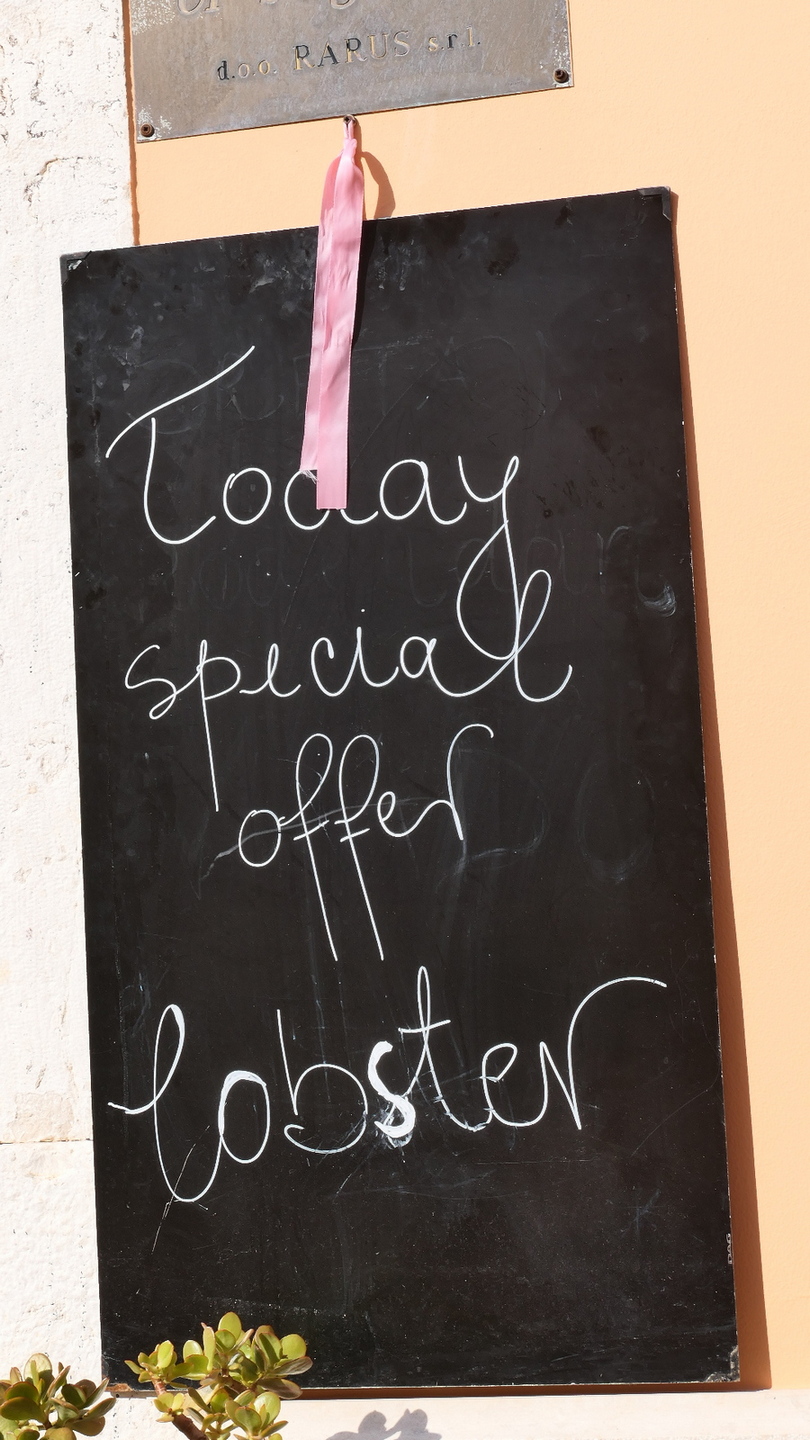 d.o.o. RARUS s.r.l.
Today
special
offer
lobster